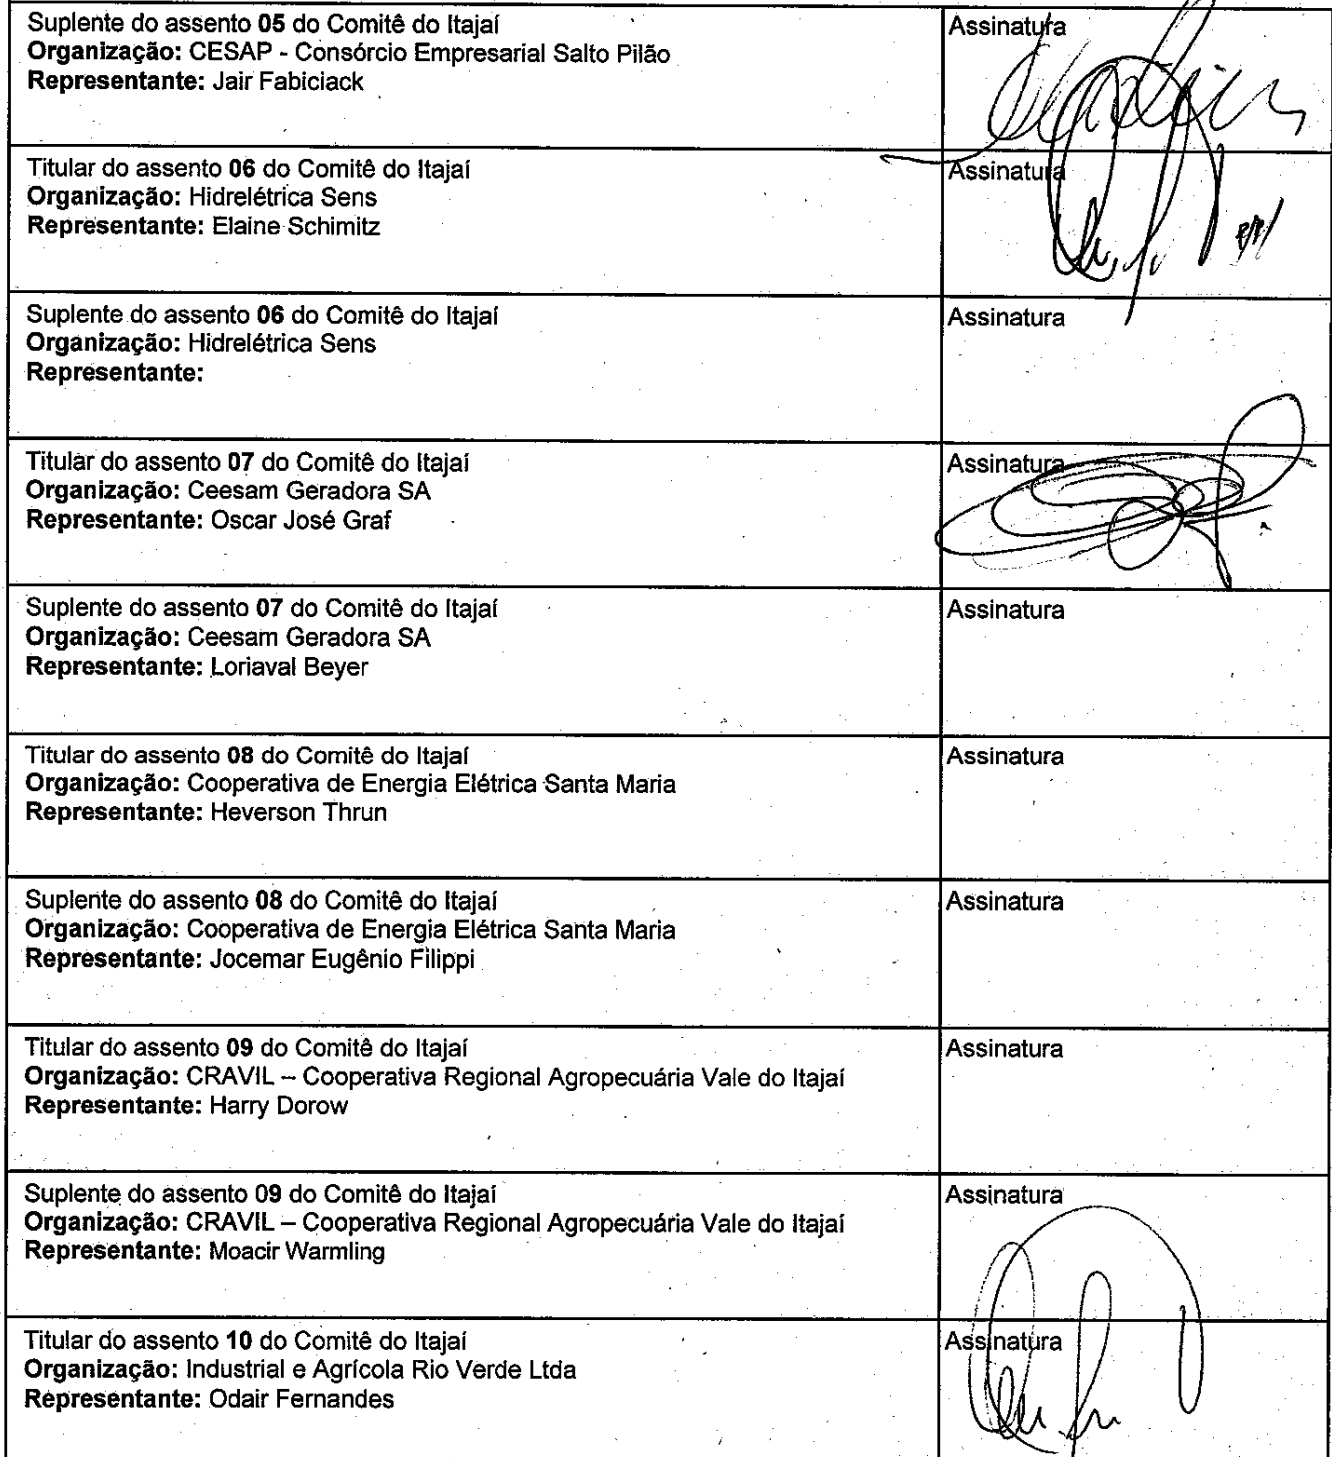 Suplente do assento 05 do Comitê do Itajaí
Organização: CESAP - Consórcio Empresarial Salto Pilão
Representante: Jair Fabiciack
Assinatura
Titular do assento 06 do Comitê do Itajaí
Organização: Hidrelétrica Sens
Representante: Elaine Schimitz
Assinatura
Suplente do assento 06 do Comitê do Itajaí
Organização: Hidrelétrica Sens
Representante:
Assinatura
Titular do assento 07 do Comitê do Itajaí
Organização: Ceesam Geradora SA
Representante: Oscar José Graf
Assinatura
Suplente do assento 07 do Comitê do Itajaí
Organização: Ceesam Geradora SA
Representante: Loriaval Beyer
Assinatura
Titular do assento 08 do Comitê do Itajaí
Organização: Cooperativa de Energia Elétrica Santa Maria
Representante: Heverson Thrun
Assinatura
Suplente do assento 08 do Comitê do Itajaí
Organização: Cooperativa de Energia Elétrica Santa Maria
Representante: Jocemar Eugênio Filippi
Assinatura
Titular do assento 09 do Comitê do Itajaí
Organização: CRAVIL – Cooperativa Regional Agropecuária Vale do Itajaí
Representante: Harry Dorow
Assinatura
Suplente do assento 09 do Comitê do Itajaí
Organização: CRAVIL – Cooperativa Regional Agropecuária Vale do Itajaí
Representante: Moacir Warmling
Assinatura
Titular do assento 10 do Comitê do Itajaí
Organização: Industrial e Agrícola Rio Verde Ltda
Representante: Odair Fernandes
Assinatura